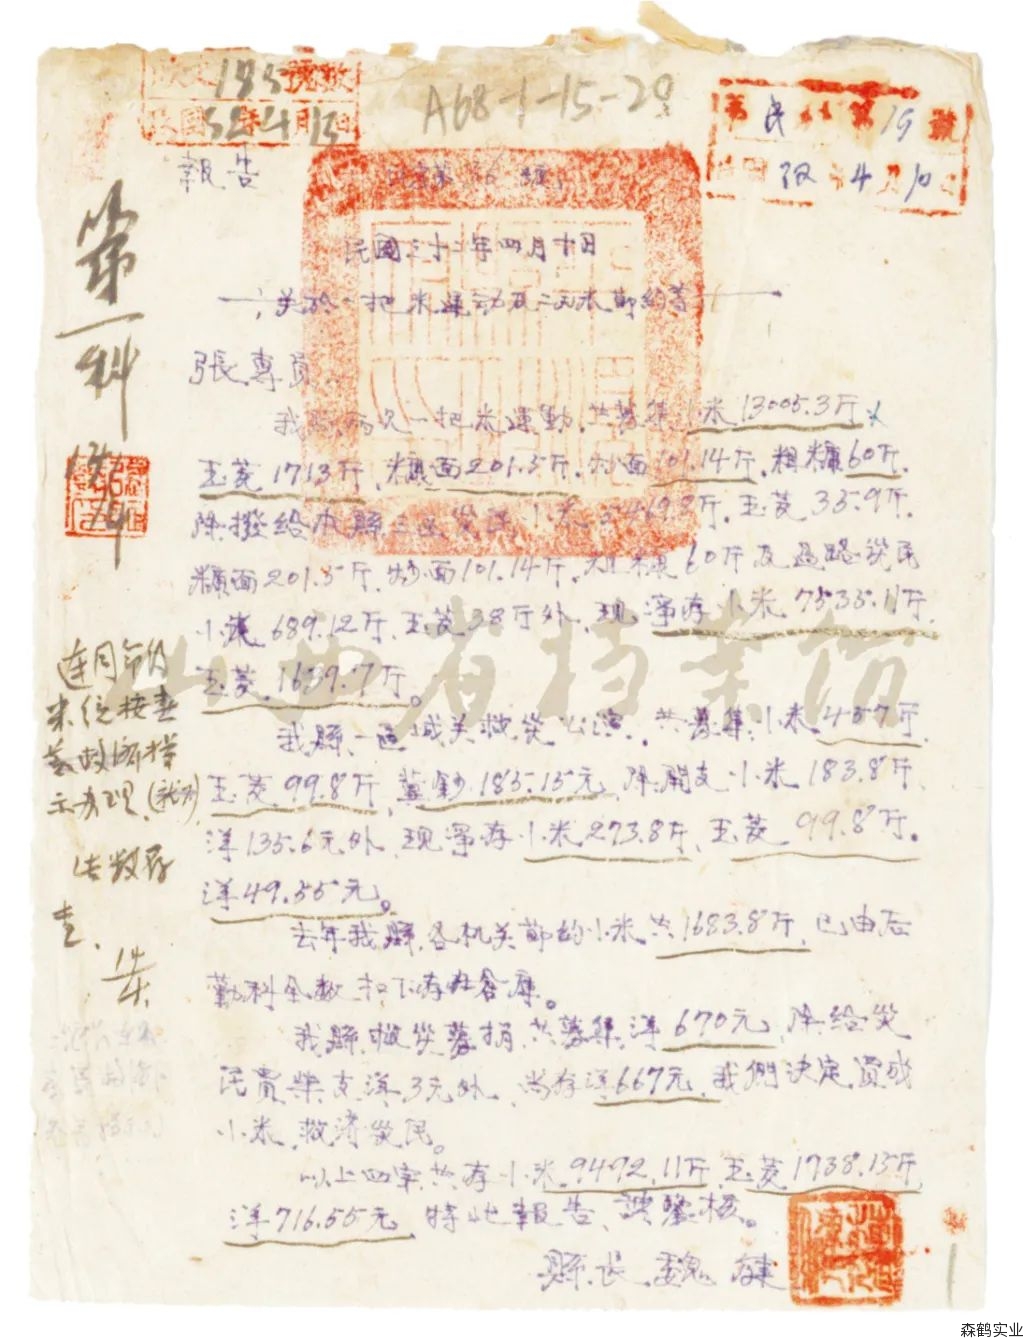 175
52 4 13
A68-1-15-29
民 19
32 4 10
報告
民國三十二年四月十日
关於一把米運動及二兩米節約等
張專員
我縣兩次一把米運動,共募集小米13005.3斤
玉茭1713斤,糠面201.5斤,炒面101.14斤,粗糠60斤,
除撥給本縣三區災民小米 469.8斤,玉茭35.9斤,
糠面201.5斤,炒面101.14斤,粗糠60斤及過路災民
小米689.12斤,玉茭38斤外,現淨存小米7535.11斤,
玉茭1639.7斤。
我縣一區城关救災公演,共募集小米457斤,
玉茭99.8斤,冀鈔185.15元,除開支小米183.8斤,
洋135.6元外,現淨存小米273.8斤,玉茭99.8斤。
洋49.55元。
去年我縣各机关節約小米共1683.8斤,已由后
勤科全数扣下存在各庫。
我縣救災募捐共募集洋670元,除給災
民買柴支洋3元外,尚存洋667元,我們決定買成
小米,救济災民。
以上四宗共存小米9492.11斤,玉茭1738.15斤,
洋716.55元,特此報告,請鑒核。
縣長 魏健
第一科
連同節約
米
救濟
示办理
告数存
查
山西省档案馆
森鹤实业